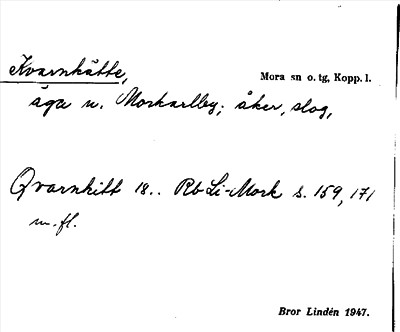 Kvarnkätte,
Mora sn o. tg, Kopp. l.
äga u. Morkarlby; åker, slog,
Qvarnkitt 18.. Rb Li-Mork s. 159, 171
m. fl.
Bror Lindén 1947.